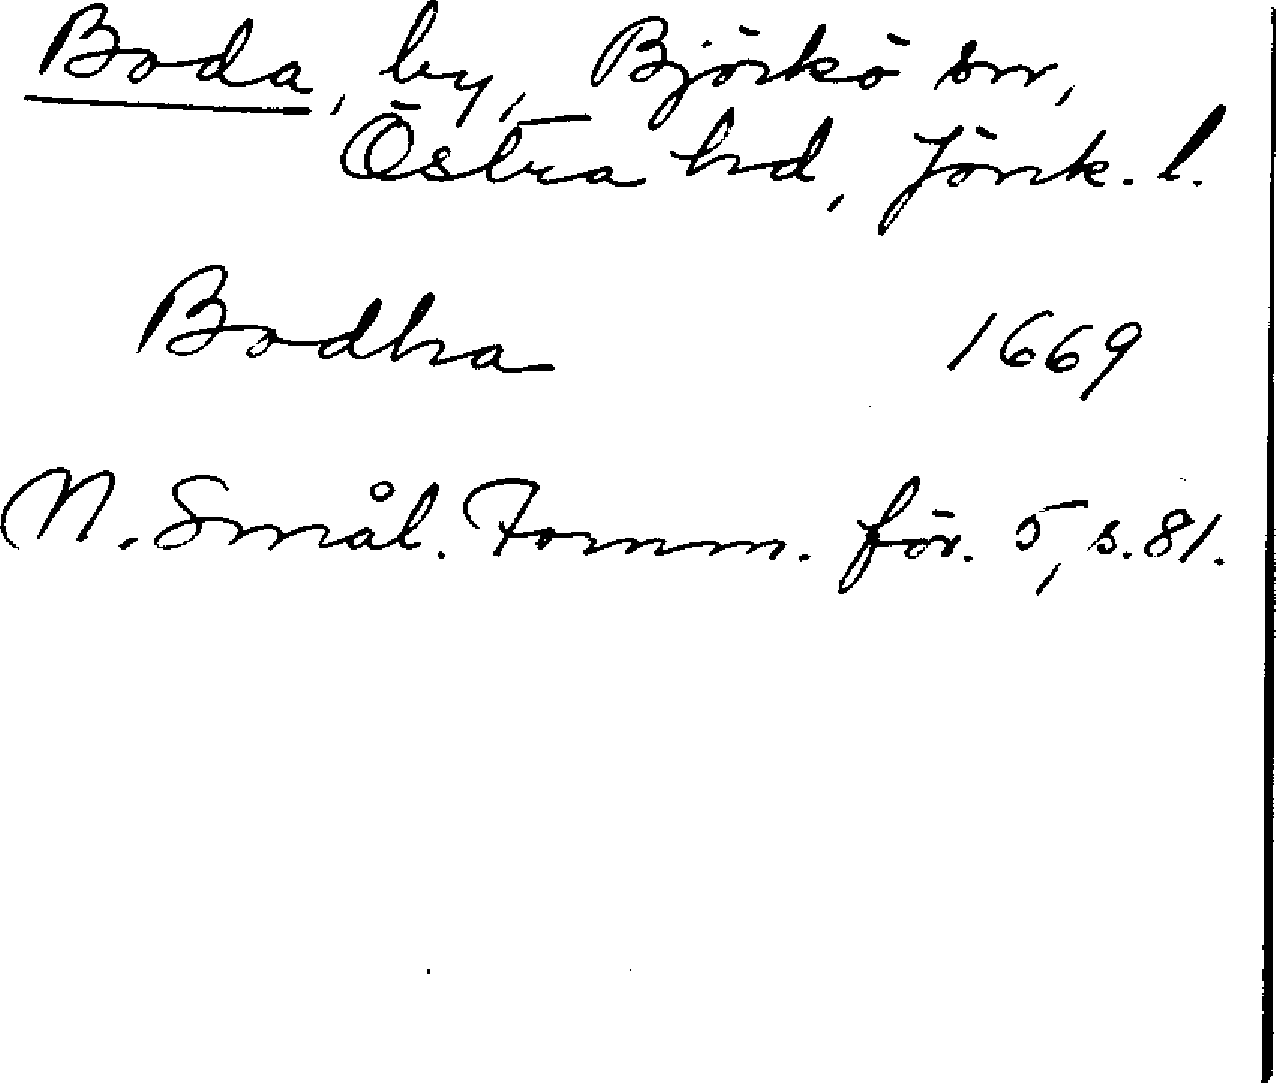 Boda, by, Björkö sn,
Östra hd, Jönk. l.
Bodha 1669
N. Smål. Fornm. för. 5, s. 81.